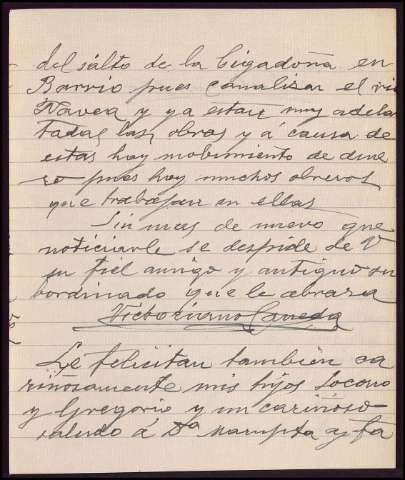 del salto de la Cigadoña en
Barrio pues canalisan el rio
Navea y ya estan muy adelan
tadas las obras y a causa de
estas hay mobimiento de dine
ro pues hay muchos obreros
que trabajan en ellas
Sin mas de nuevo que
noticiarle se despide de V
su fiel amigo y antiguo su
bordinado que le abraza
Victoriano
Le felicitan también ca
riñosamente mis hijos
y Gregorio y un cariñoso
saludo á Dª